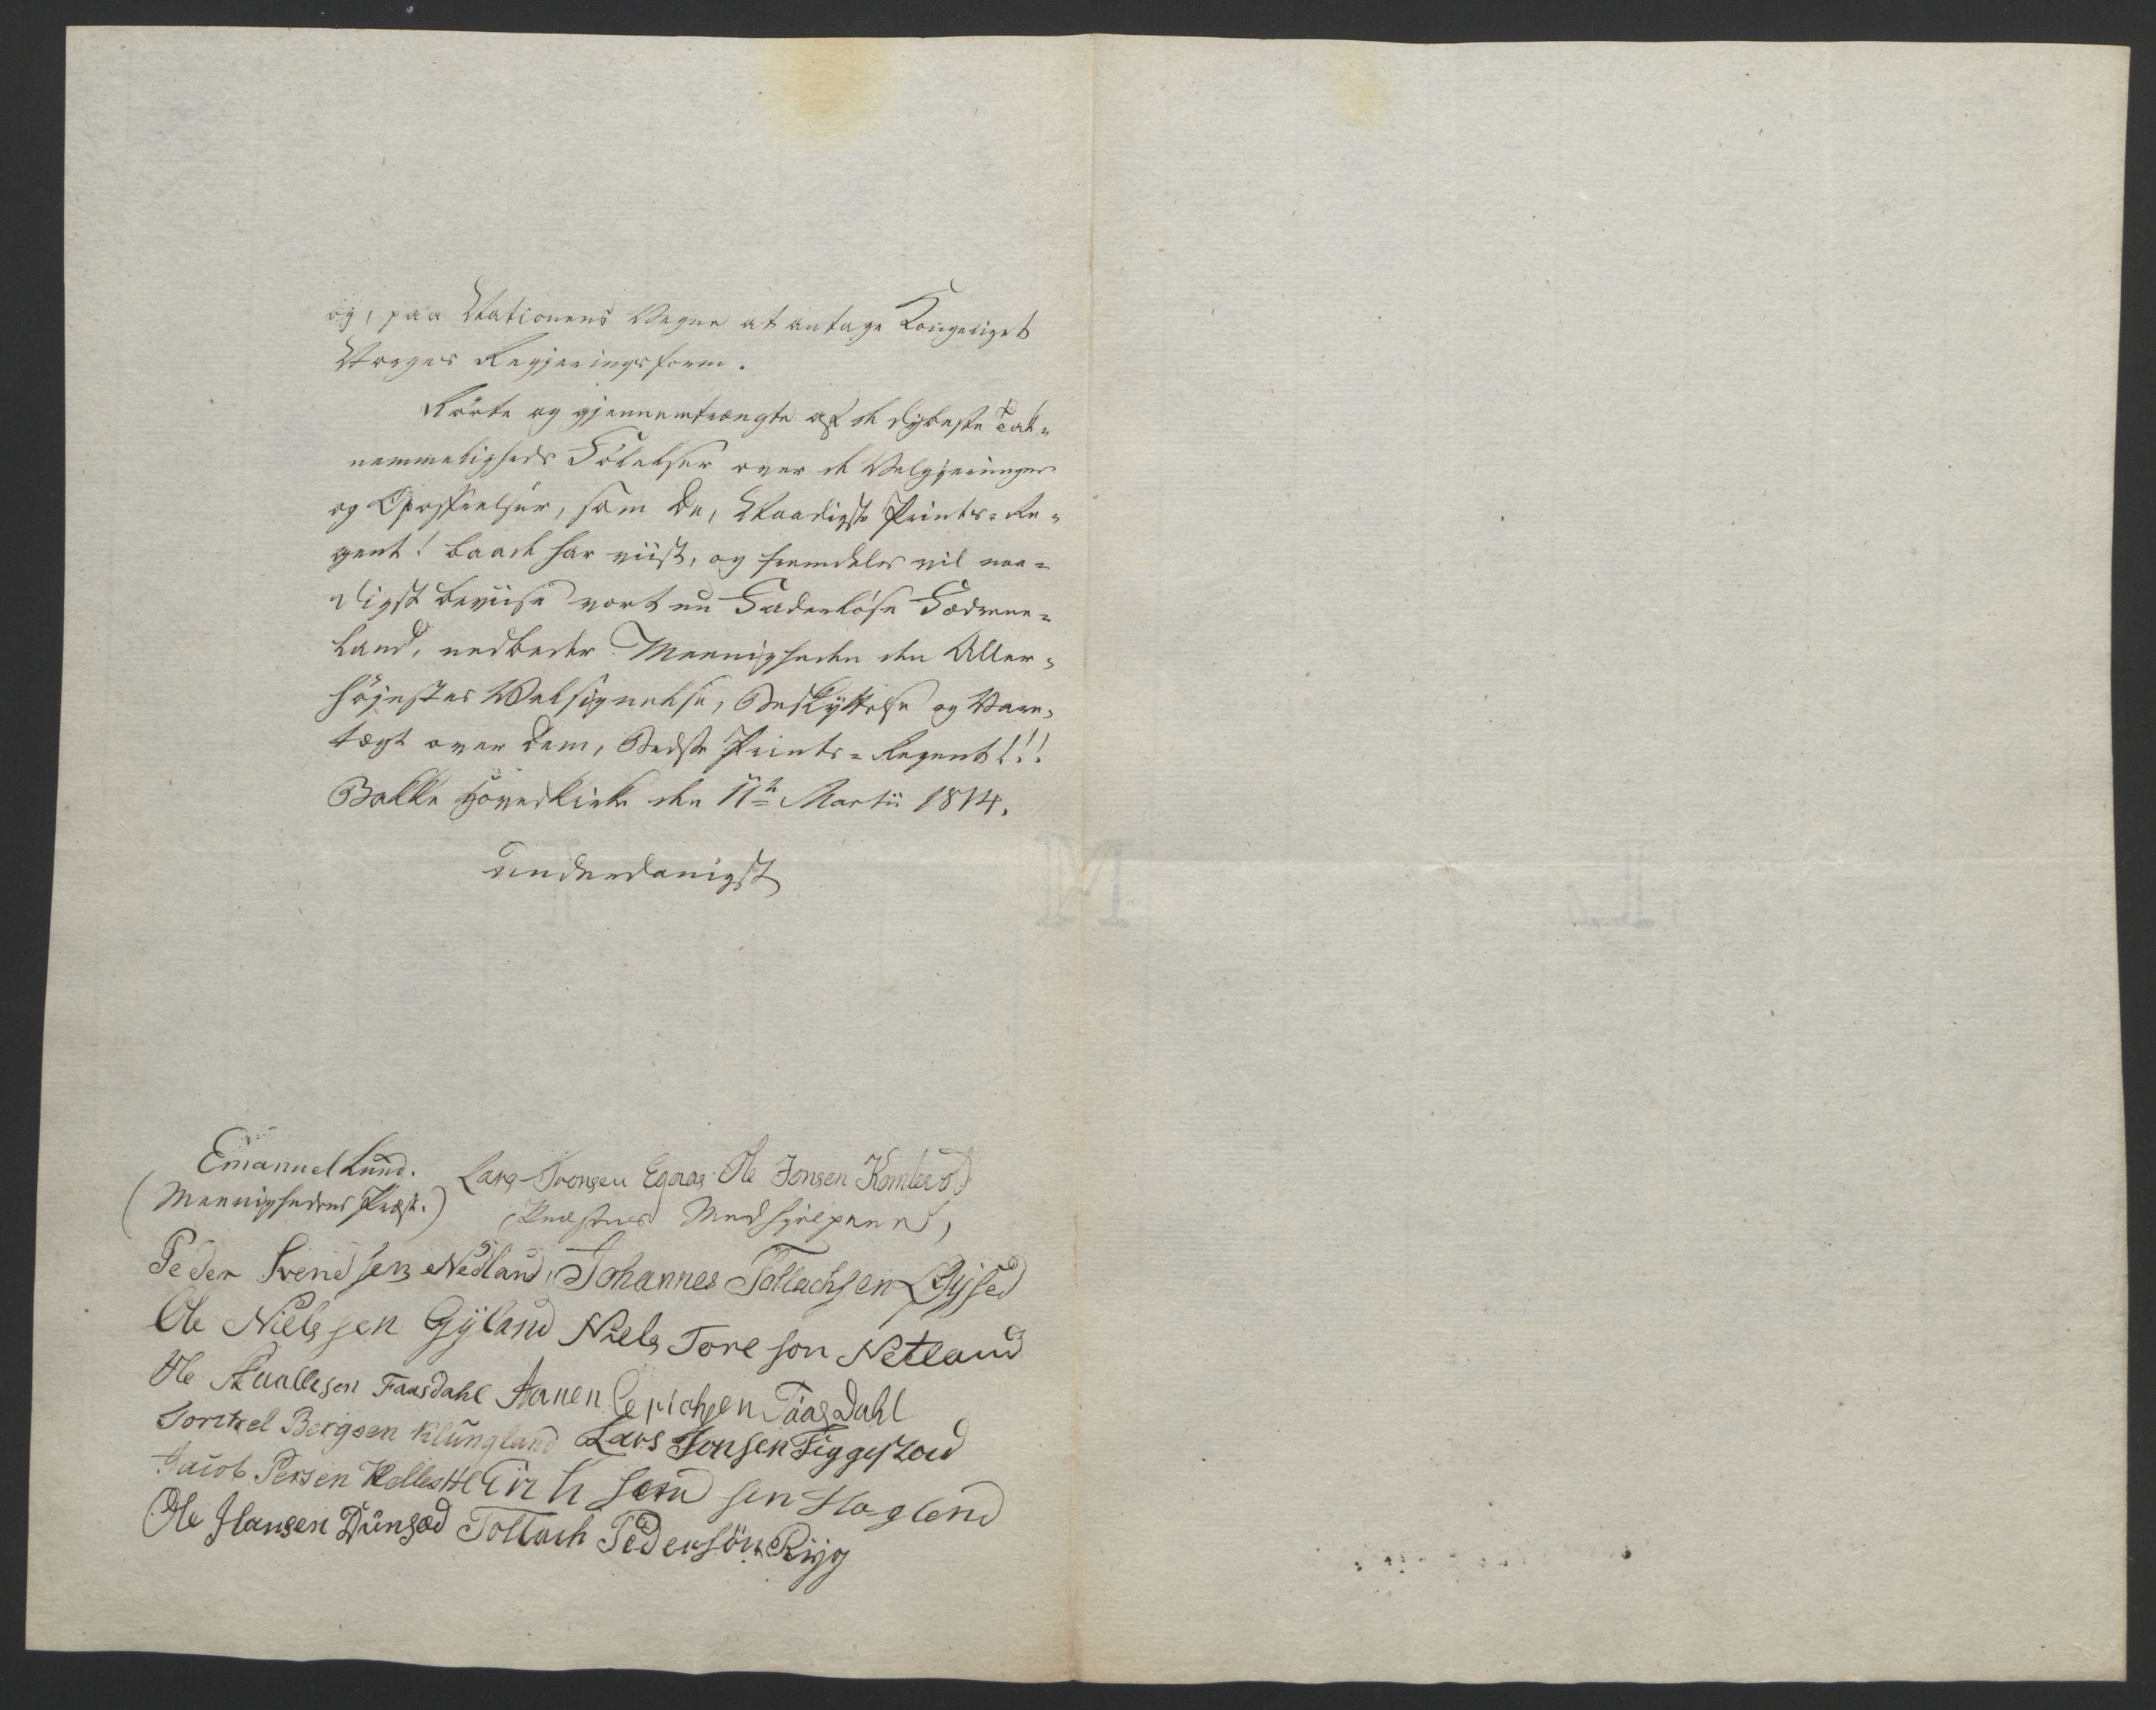 og, paa Nationens Vegne at antage Kongeriget
Norges Regjeringsform.
Rörte og gjennemtrængte af de dybeste Tak-
nemmeligheds Fölelser over de Velgjerninger
og Opofrelser, som De, Naadigste Prints-Re-
gent! baade har viist, og fremdeles vil naa-
digst beviise vort nu Faderlöse Fædrene-
land, nedbeder Menigheden den Aller-
höjestes Velsignelse, Beskyttelse og Vare-
tægt over Dem, Bedste Prints-Regent!!!
Bakke Hovedkirke den 11te Martii 1814.
underdanigst
Emanuel Lund. Lars Tronsen Egaas Ole Jonsen
(Menighedens Præst.) (Præstens Medhjelpere),
Peder Svendsen Nedland, Johannes Tollachsen
Ole Nielssen Gÿland Niels Toreson Netland
Ole Aaallesen Faasdahl Aanen Erichsen Faasdahl
Torchel Bergsen Klüngland Lars Jonsen Figgestad
Jacob Persen sen Hagland
Ole Hansen Dünsæd Tollach Pedersön Rijg